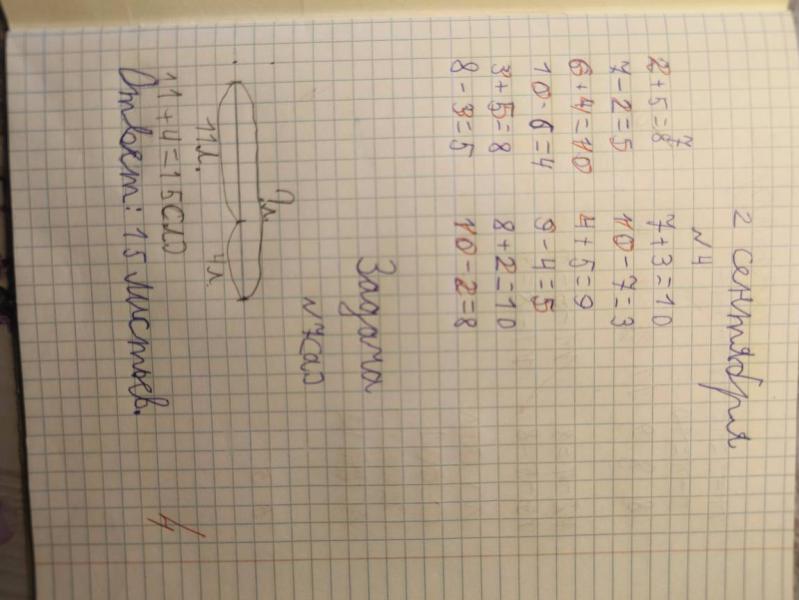 2 сентября
№4
2+5=8 7 7+3=10
7-2=5 10-7=3
6+4=10 4+5=9
10-6=4 9-4=5
3+5=8 8+2=10
8-3=5 10-2=8
Задача
№7(а)
?л.
11л. 4л.
11+4=15(л)
Ответ: 15 листьев.
4